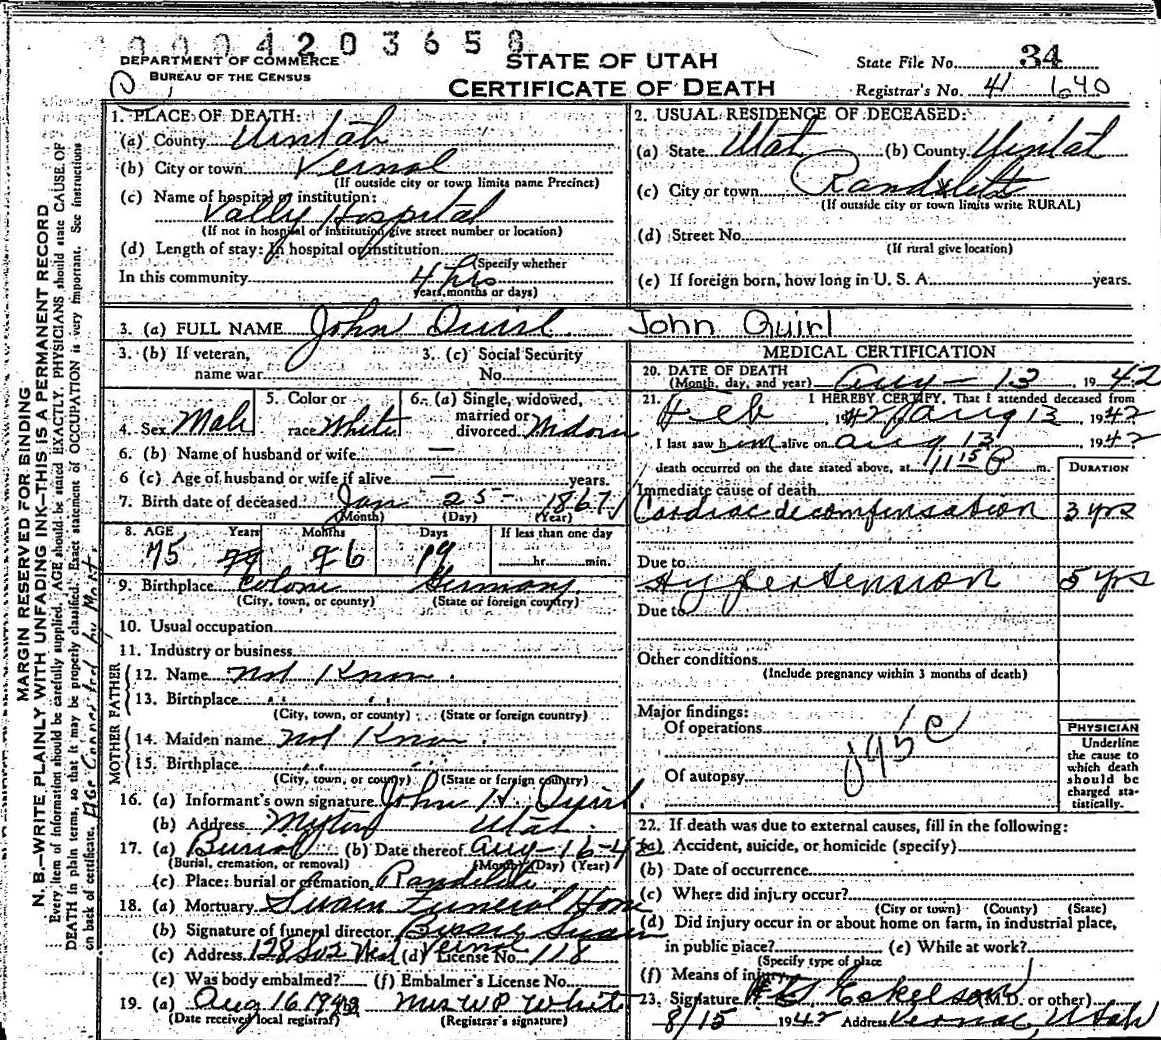 0004203658
DEPARTMENT OF COMMERCE
BUREAU OF THE CENSUS
STATE OF UTAH
CERTIFICATE OF DEATH
State File No. 34
Registrar's No. 41 1640
MARGIN RESERVED FOR BINDING
N. B.—WRITE PLAINLY WITH UNFADING INK—THIS IS A PERMANENT RECORD
Every item of information should be carefully supplied. AGE should be stated EXACTLY. PHYSICIANS should state CAUSE OF
DEATH in plain terms, so that it may be properly classified. Exact statement of OCCUPATION is very important. See Instructions
on back of certificate.
1. PLACE OF DEATH:
(a) County Uintah
(b) City or town Vernal
(If outside city or town limits name Precinct)
(c) Name of hospital or institution:
Vally Hospital
(If not in hospital or institution give street number or location)
(d) Length of stay: In hospital or institution
(Specify whether
In this community 4 hrs
years, months or days)
2. USUAL RESIDENCE OF DECEASED:
(a) State Utah (b) County Uintah
(c) City or town Randlett
(If outside city or town limits write RURAL)
(d) Street No.
(If rural give location)
(e) If foreign born, how long in U. S. A. years.
3. (a) FULL NAME John Quirl John Quirl
3. (b) If veteran,
name war
3. (c) Social Security
No.
4. Sex Male
5. Color or
race White
6. (a) Single, widowed,
married or
divorced Widow
6. (b) Name of husband or wife —
6 (c) Age of husband or wife if alive — years.
7. Birth date of deceased Jan 25 1867
(Month) (Day) (Year)
8. AGE Years Months Days If less than one day
75 6 19 hr. min.
9. Birthplace Colone Germany
(City, town, or county) (State or foreign country)
10. Usual occupation
11. Industry or business
FATHER
12. Name Not Know
13. Birthplace
(City, town, or county) (State or foreign country)
MOTHER
14. Maiden name Not Know
15. Birthplace
(City, town, or county) (State or foreign country)
16. (a) Informant's own signature John H. Quirl
(b) Address Myton Utah
17. (a) Burial (b) Date thereof Aug-16-42
(Burial, cremation, or removal) (Month) (Day) (Year)
(c) Place: burial or cremation Randlett
18. (a) Mortuary Swain Funeral Home
(b) Signature of funeral director Swain
(c) Address 128 So 2 West Vernal (d) License No. 118
(e) Was body embalmed? (f) Embalmer's License No.
19. (a) Aug 16 1942 Mrs W P White
(Date received local registrar) (Registrar's signature)
MEDICAL CERTIFICATION
20. DATE OF DEATH
(Month, day, and year) Aug — 13, 1942
21. I HEREBY CERTIFY, That I attended deceased from
Feb, 1942, Aug 13, 1942
I last saw him alive on Aug 13, 1942
death occurred on the date stated above, at 11 15 P m.
DURATION
Immediate cause of death
Cardiac decompensation 3 yrs
Due to
Hypertension 5 yrs
Due to
Other conditions
(Include pregnancy within 3 months of death)
Major findings:
Of operations
Of autopsy
PHYSICIAN
Underline
the cause to
which death
should be
charged sta-
tistically.
22. If death was due to external causes, fill in the following:
(a) Accident, suicide, or homicide (specify)
(b) Date of occurrence
(c) Where did injury occur?
(City or town) (County) (State)
(d) Did injury occur in or about home on farm, in industrial place,
in public place? (e) While at work?
(Specify type of place
(f) Means of injury
23. Signature Eskelson (M.D. or other)
8/15 1942 Address Vernal, Utah